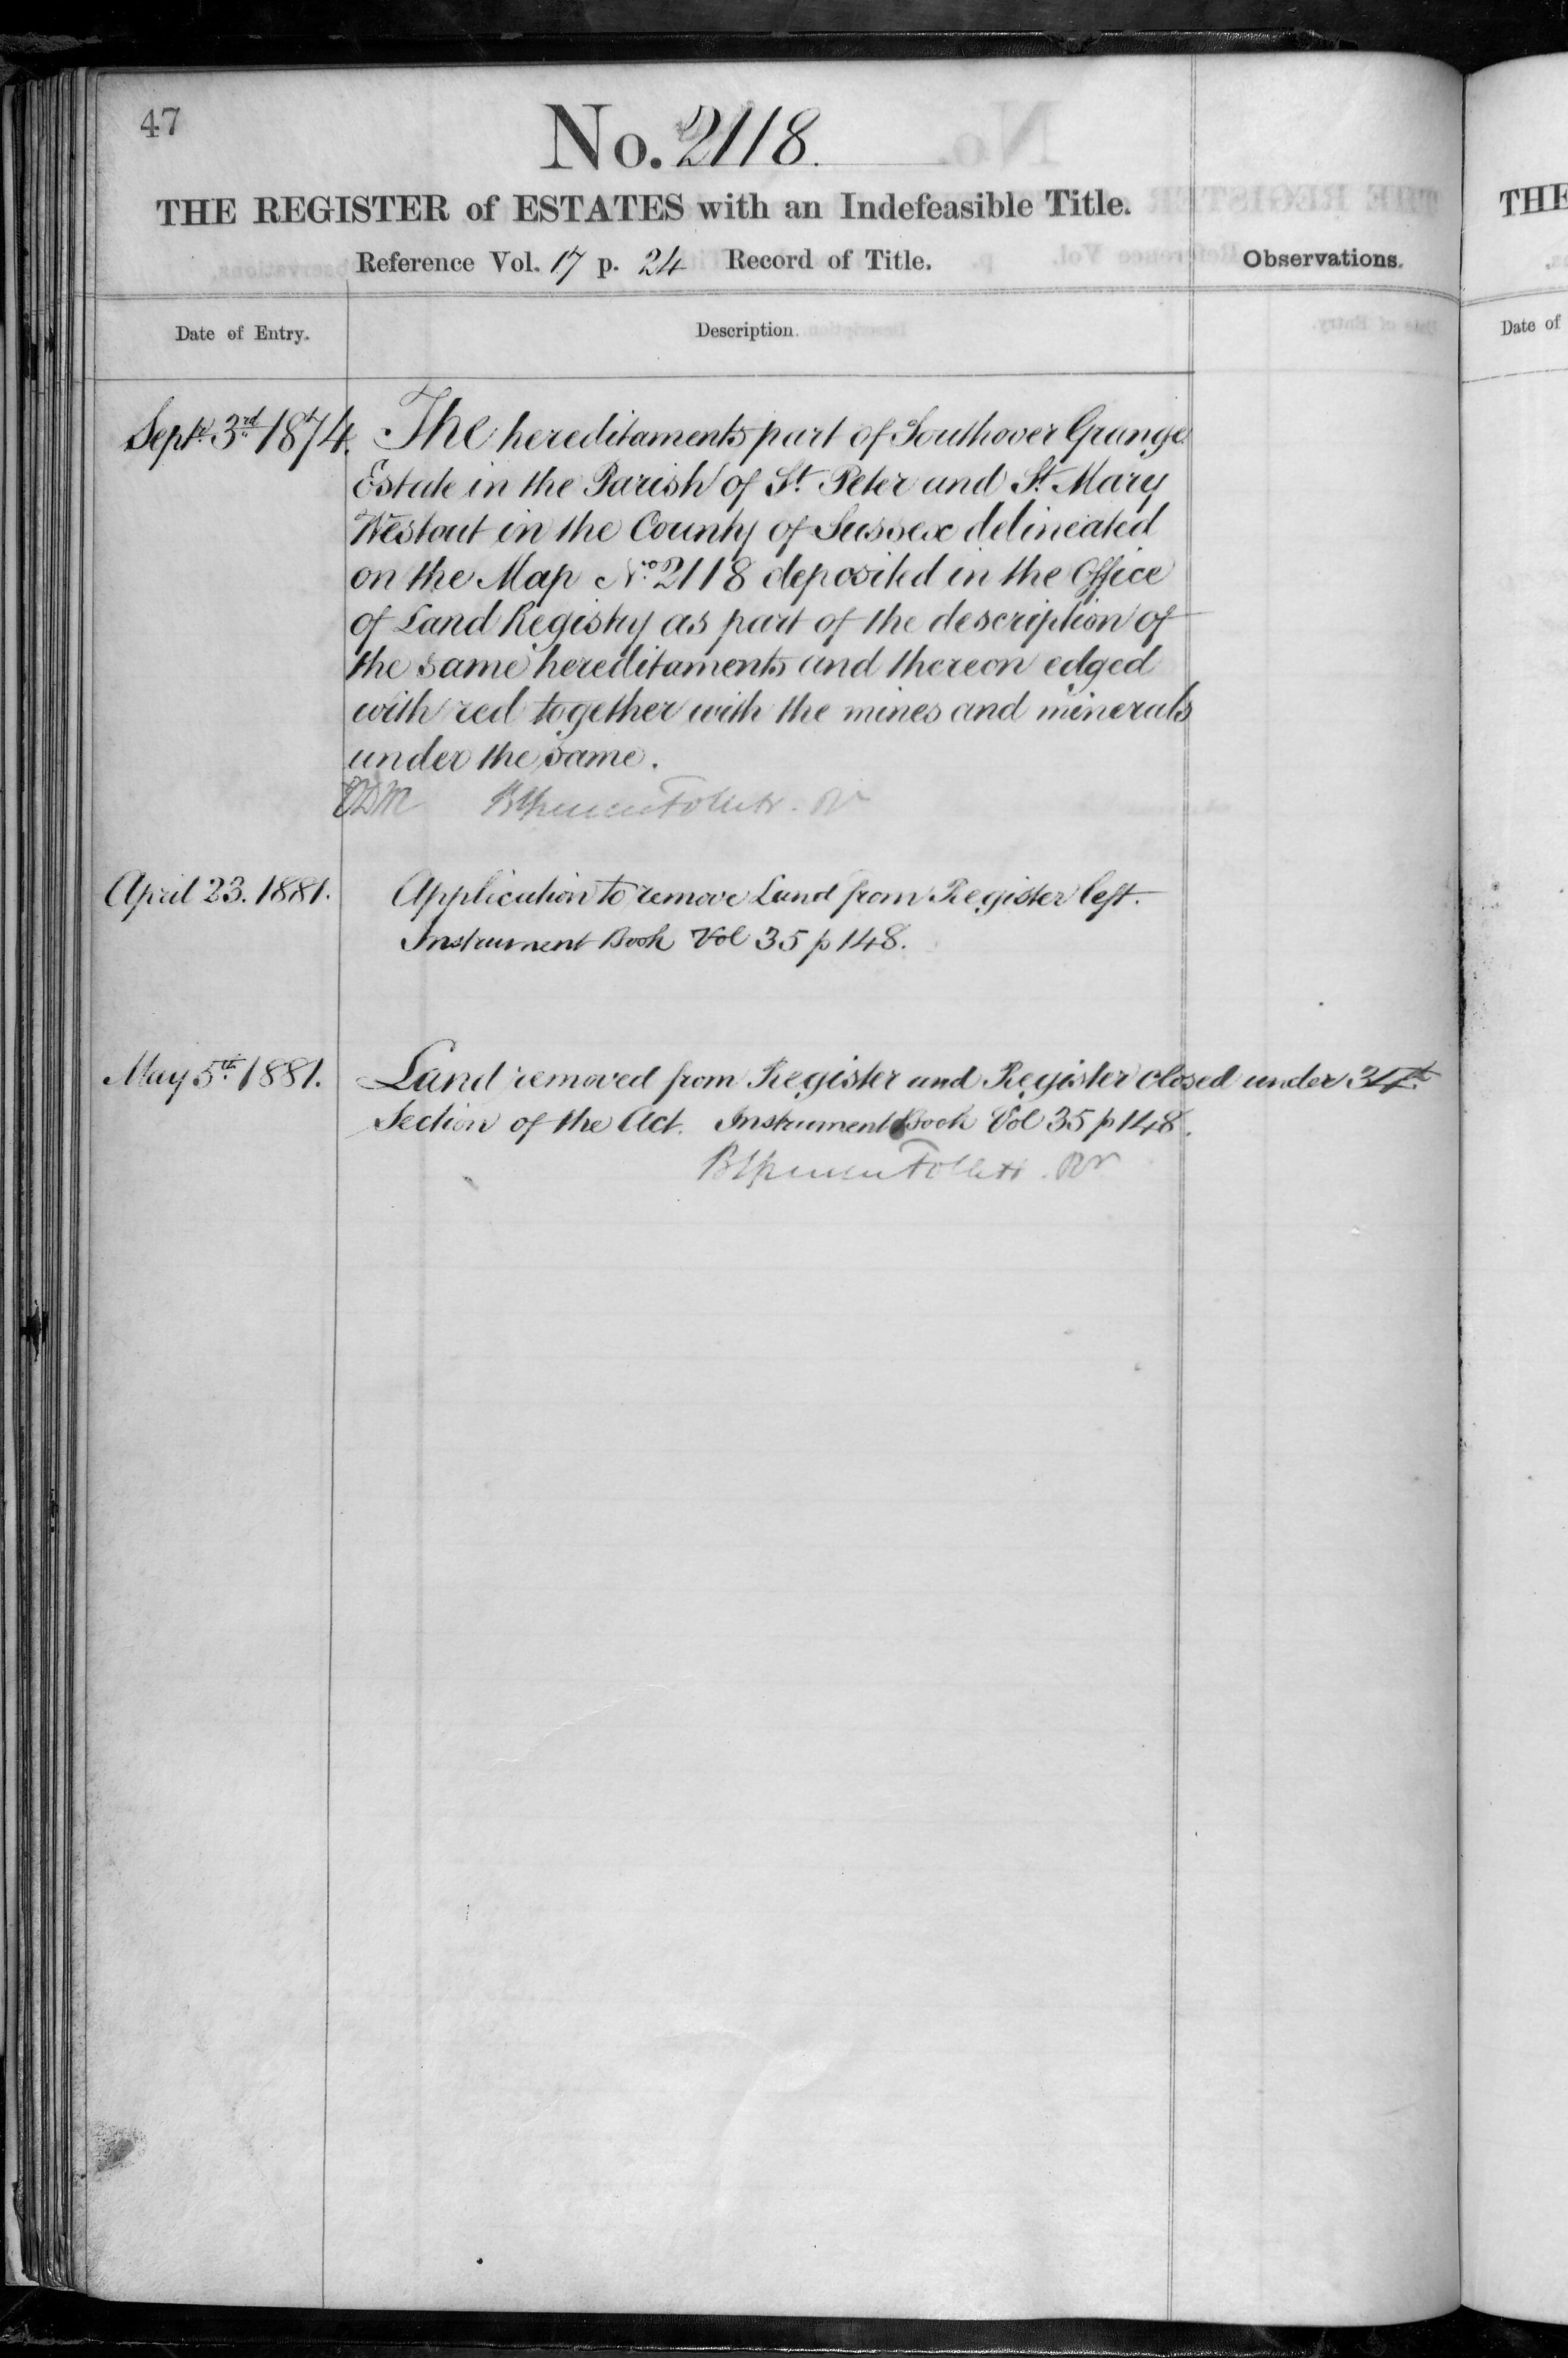 47
No. 2118.
THE REGISTER of ESTATES with an Indefeasible Title.
Reference Vol. 17 p. 24 Record of Title.
Observations.
Date of Entry.
Description.
Septr. 3rd 1874. The hereditaments part of Southover Grange
Estate in the Parish of St. Peter and St. Mary
Westout in the County of Sussex delineated
on the Map No. 2118 deposited in the Office
of Land Registry as part of the description of
the same hereditaments and thereon edged
with red together with the mines and minerals
under the same.
BSpencer Follett. Rr
April 23. 1881. Application to remove Land from Register left.
Instrument Book Vol 35 p 148.
May 5th. 1881. Land removed from Register and Register closed under 34th.
Section of the Act. Instrument Book Vol 35 p 148.
BSpencer Follett. Rr
THE
Date of